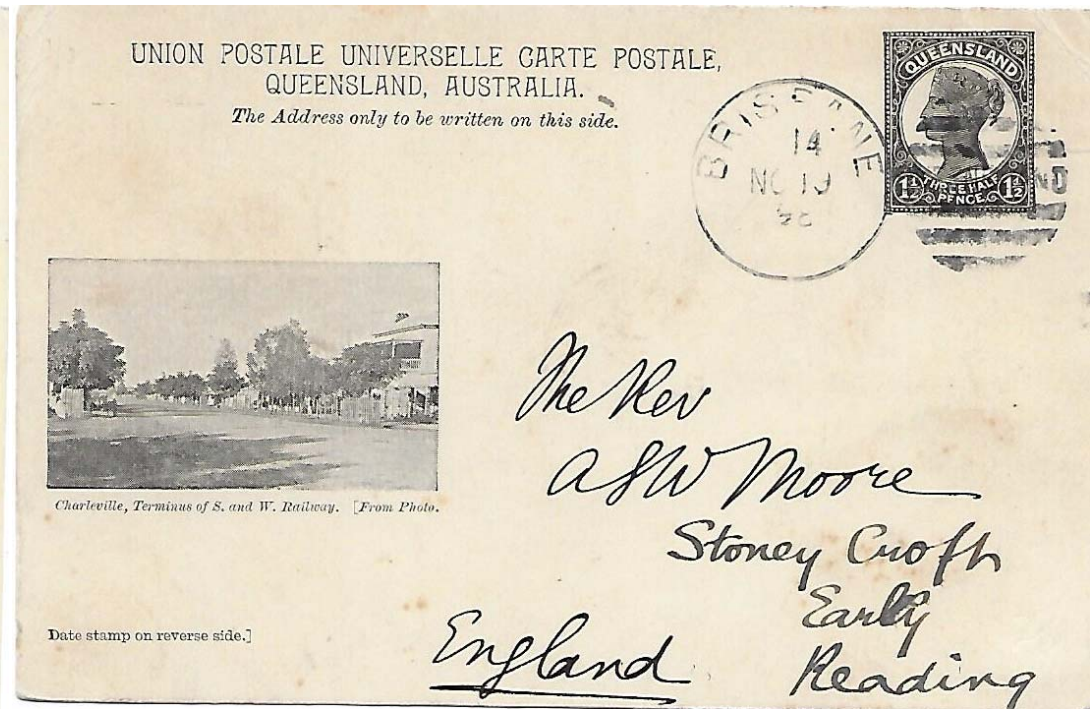 UNION POSTALE UNIVERSELLE CARTE POSTALE,
QUEENSLAND, AUSTRALIA.
The Address only to be written on this side.
BRISBANE
14
NO 19
QUEENSLAND
1½ THREE HALF PENCE 1½
Charleville, Terminus of S. and W. Railway. [From Photo.
The Rev
A S W Moore
Stoney Croft
Early
Reading
England
Date stamp on reverse side.]